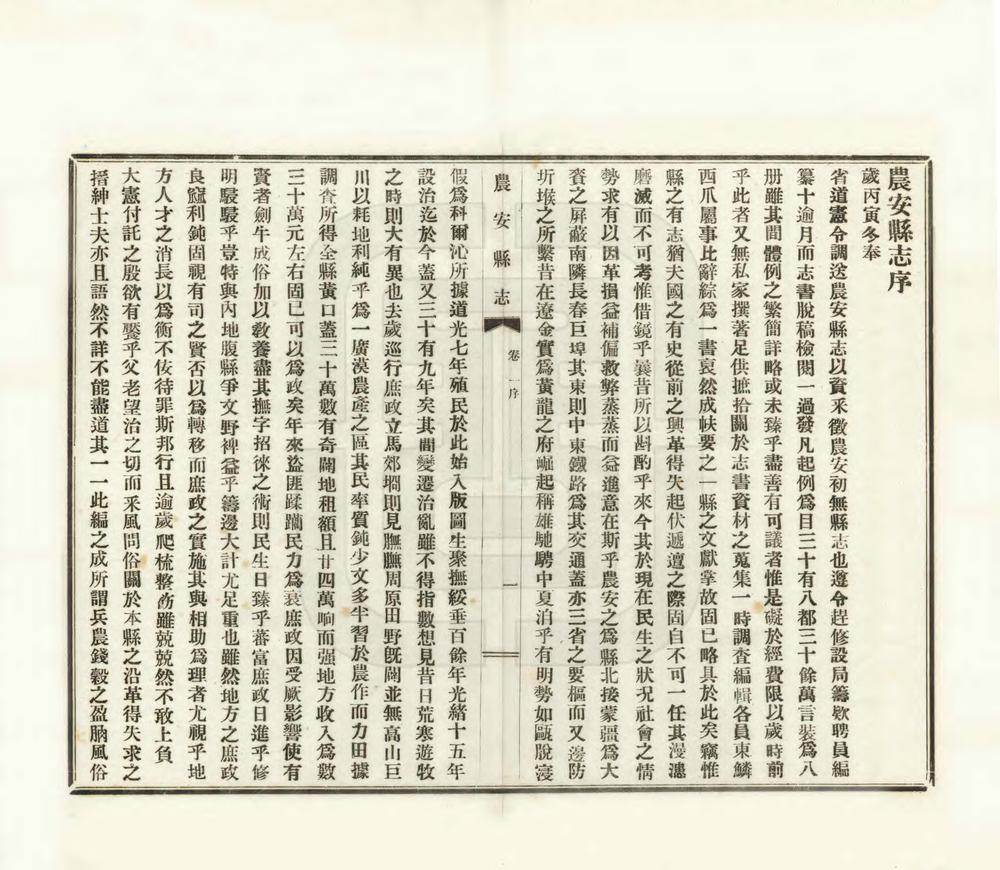 農安縣志序
歲丙寅冬奉
省道憲令調送農安縣志以資釆徵農安初無縣志也遵令趕修設局籌欵聘員編
纂十逾月而志書脫稿檢閱一過發凡起例爲目三十有八都三十餘萬言裝爲八
册雖其間體例之繁簡詳略或未臻乎盡善有可議者惟是礙於經費限以歲時前
乎此者又無私家撰著足供摭拾關於志書資材之蒐集一時調查編輯各員東鱗
西爪屬事比辭綜爲一書裒然成帙要之一縣之文獻掌故固已略具於此矣竊惟
縣之有志猶夫國之有史從前之興革得失起伏遞邅之際固自不可一任其漫漶
磨滅而不可考惟借鏡乎曩昔所以斟酌乎來今其於現在民生之狀况社會之情
勢求有以因革損益補偏救弊蒸蒸而益進意在斯乎農安之爲縣北接蒙疆爲大
賚之屏蔽南隣長春巨埠其東則中東鐵路爲其交通蓋亦三省之要樞而又邊防
圻堠之所繫昔在遼金實爲黃龍之府崛起稱雄馳騁中夏洎乎有明勢如甌脫寖
農安縣志
卷一序
一
假爲科爾沁所據道光七年殖民於此始入版圖生聚撫綏垂百餘年光緒十五年
設治迄於今蓋又三十有九年矣其間變遷治亂雖不得指數想見昔日荒寒遊牧
之時則大有異也去歲巡行庶政立馬郊坰則見膴膴周原田野旣闢並無高山巨
川以耗地利純乎爲一廣漠農產之區其民率質鈍少文多半習於農作而力田據
調查所得全縣黃口蓋三十萬數有奇闢地租額且廿四萬晌而强地方收入爲數
三十萬元左右固已可以爲政矣年來盜匪蹂躪民力爲衰庶政因受厥影響使有
賢者劍牛成俗加以教養盡其撫字招徠之術則民生日臻乎蕃富庶政日進乎修
明駸駸乎豈特與內地腹縣爭文野裨益乎籌邊大計尤足重也雖然地方之庶政
良窳利鈍固視有司之賢否以爲轉移而庶政之實施其與相助爲理者尤視乎地
方人才之消長以爲衡不佞待罪斯邦行且逾歲爬梳整飭雖兢兢然不敢上負
大憲付託之殷欲有饜乎父老望治之切而釆風問俗關於本縣之沿革得失求之
搢紳士夫亦且語然不詳不能盡道其一一此編之成所謂兵農錢榖之盈朒風俗